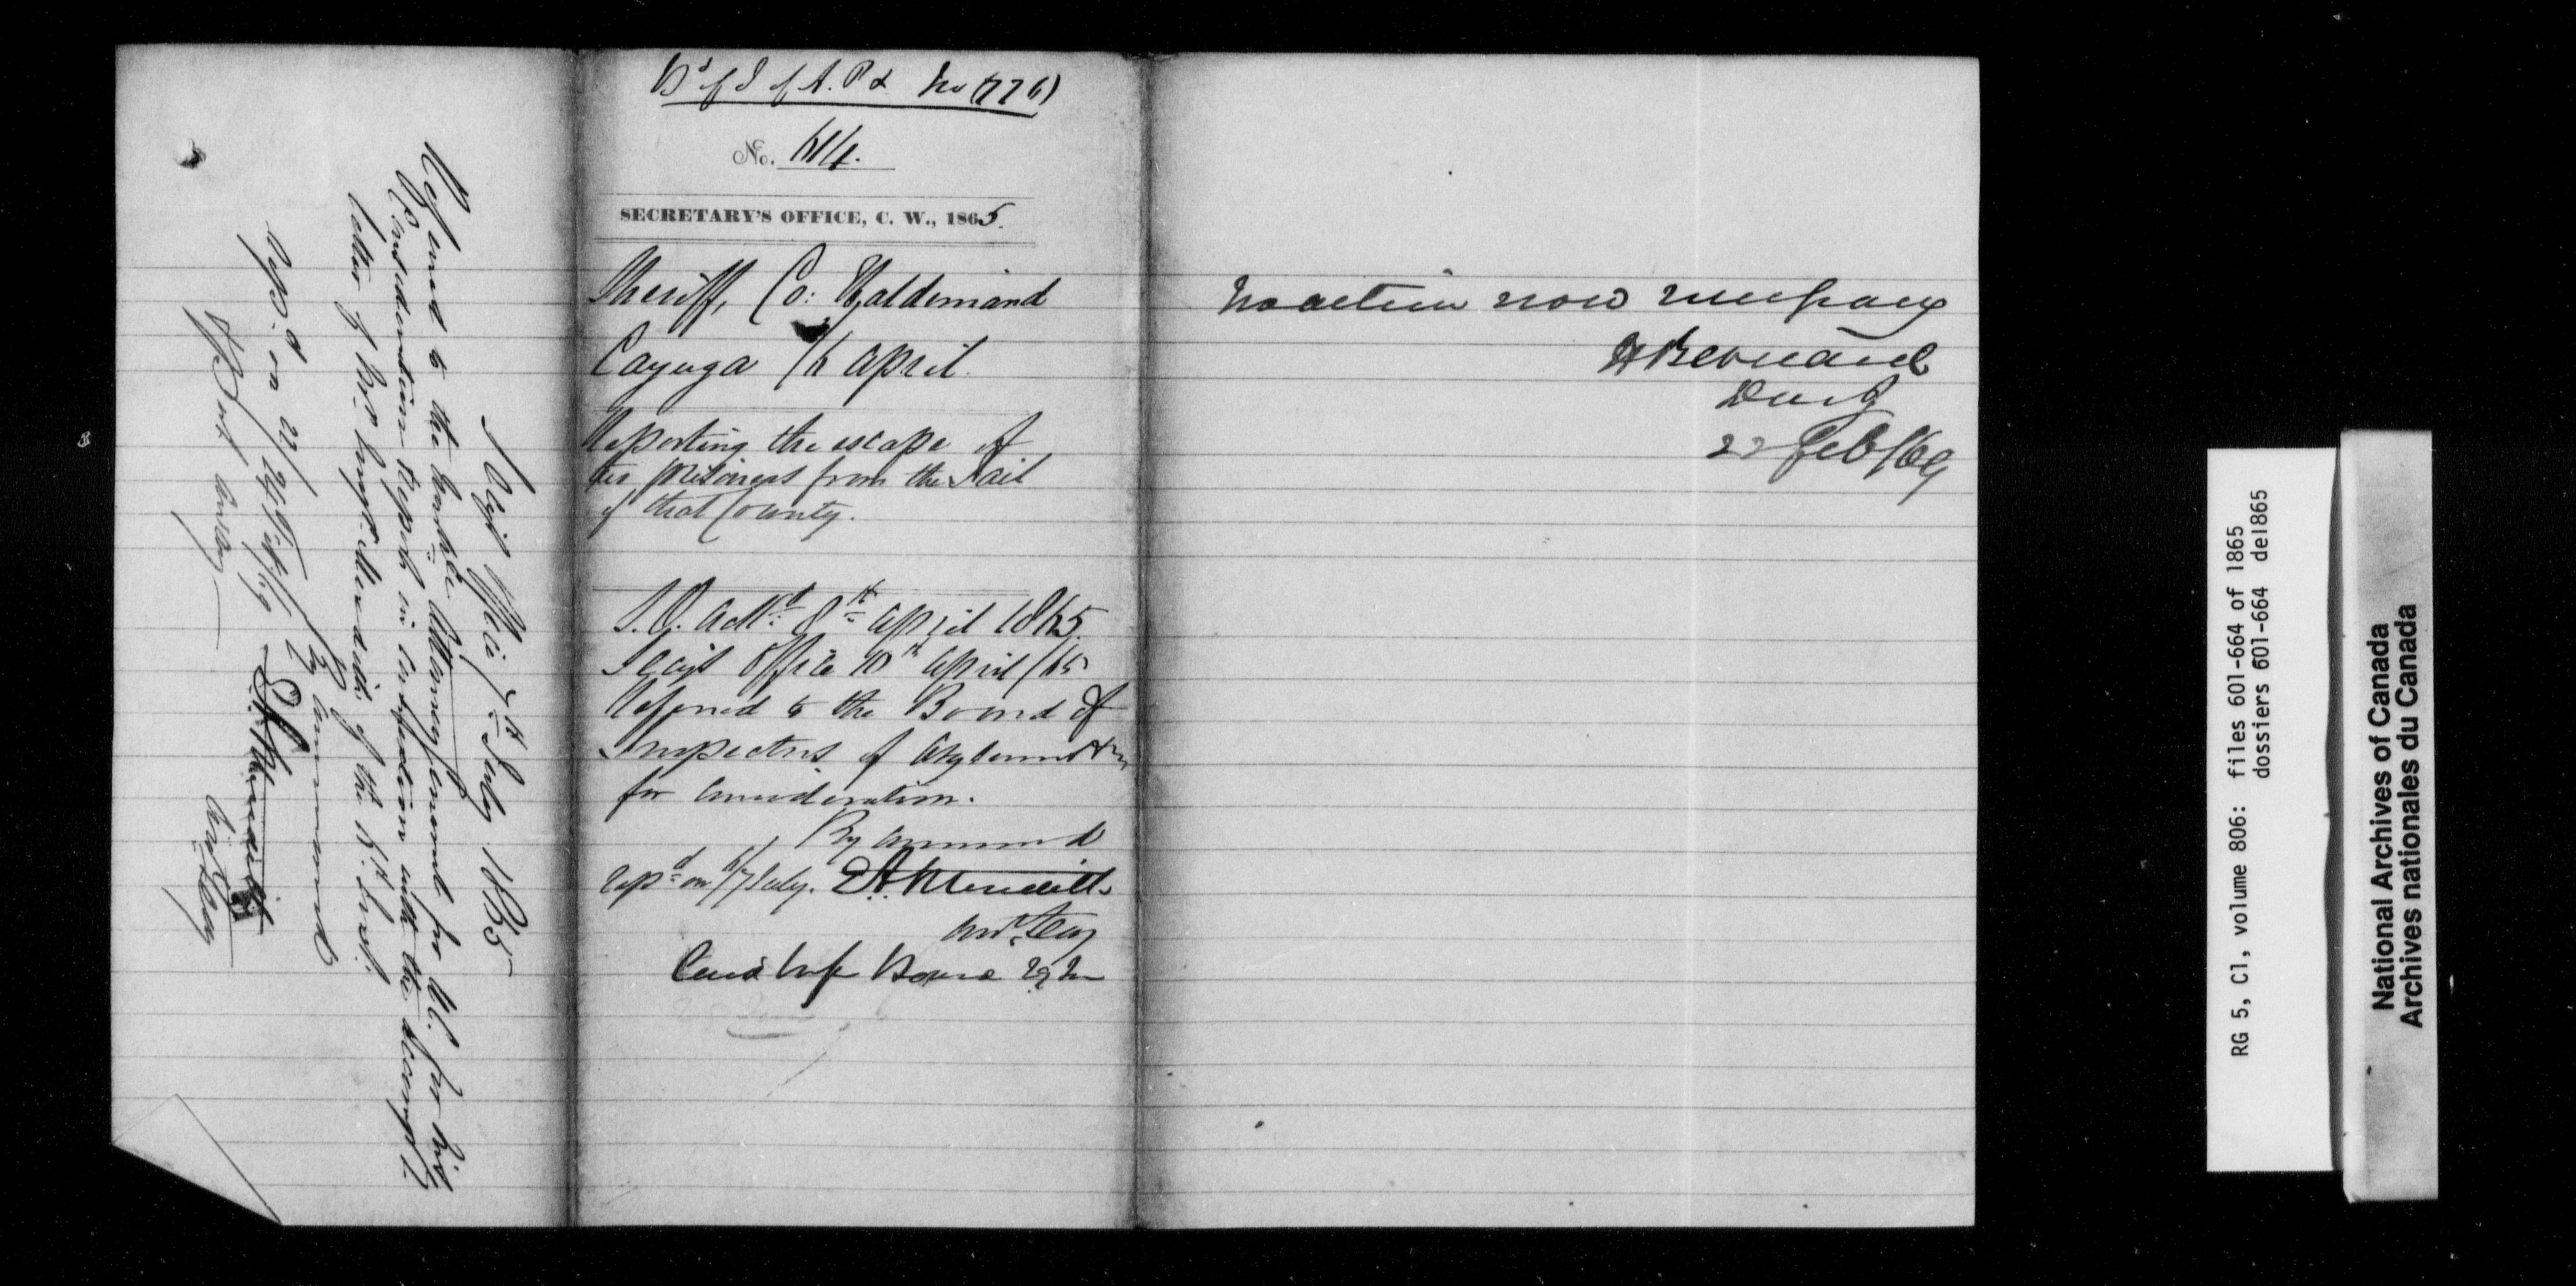 Secy's Office 7th July 1865
Referred to the Honble Attorney General for U.C. for his
Consideration & report in Connection with the accompg
letter of Mr. of the 5th Inst.
By Command
E A Meredith
Asst Secy
Repd on 22/24
Bd of I of A. P & No (776)
No. 614.
SECRETARY'S OFFICE, C. W., 1865.
Sheriff, Co: Haldimand
Cayuga /6 April.
Reporting the escape of
prisoners from the Jail
of that County.
S.O. Ackd 8th April 1865.
Secy's Office 10th April /65
Referred to the Board of
Inspectors of Asylums &c
for Consideration.
By Command
Repd on 6/7 July. E A Meredith
Asst Secy
No action now necessary
H Bernard
22 Feb /69
RG 5, C1, volume 806: files 601-664 of 1865
dossiers 601-664 de1865
National Archives of Canada
Archives nationales du Canada